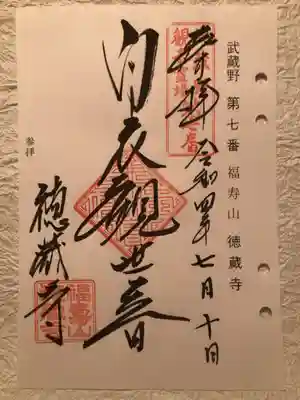 武蔵野 第七番 福寿山 徳蔵寺
奉拝 令和四年七月十日
白衣観世音
参拝
徳蔵寺